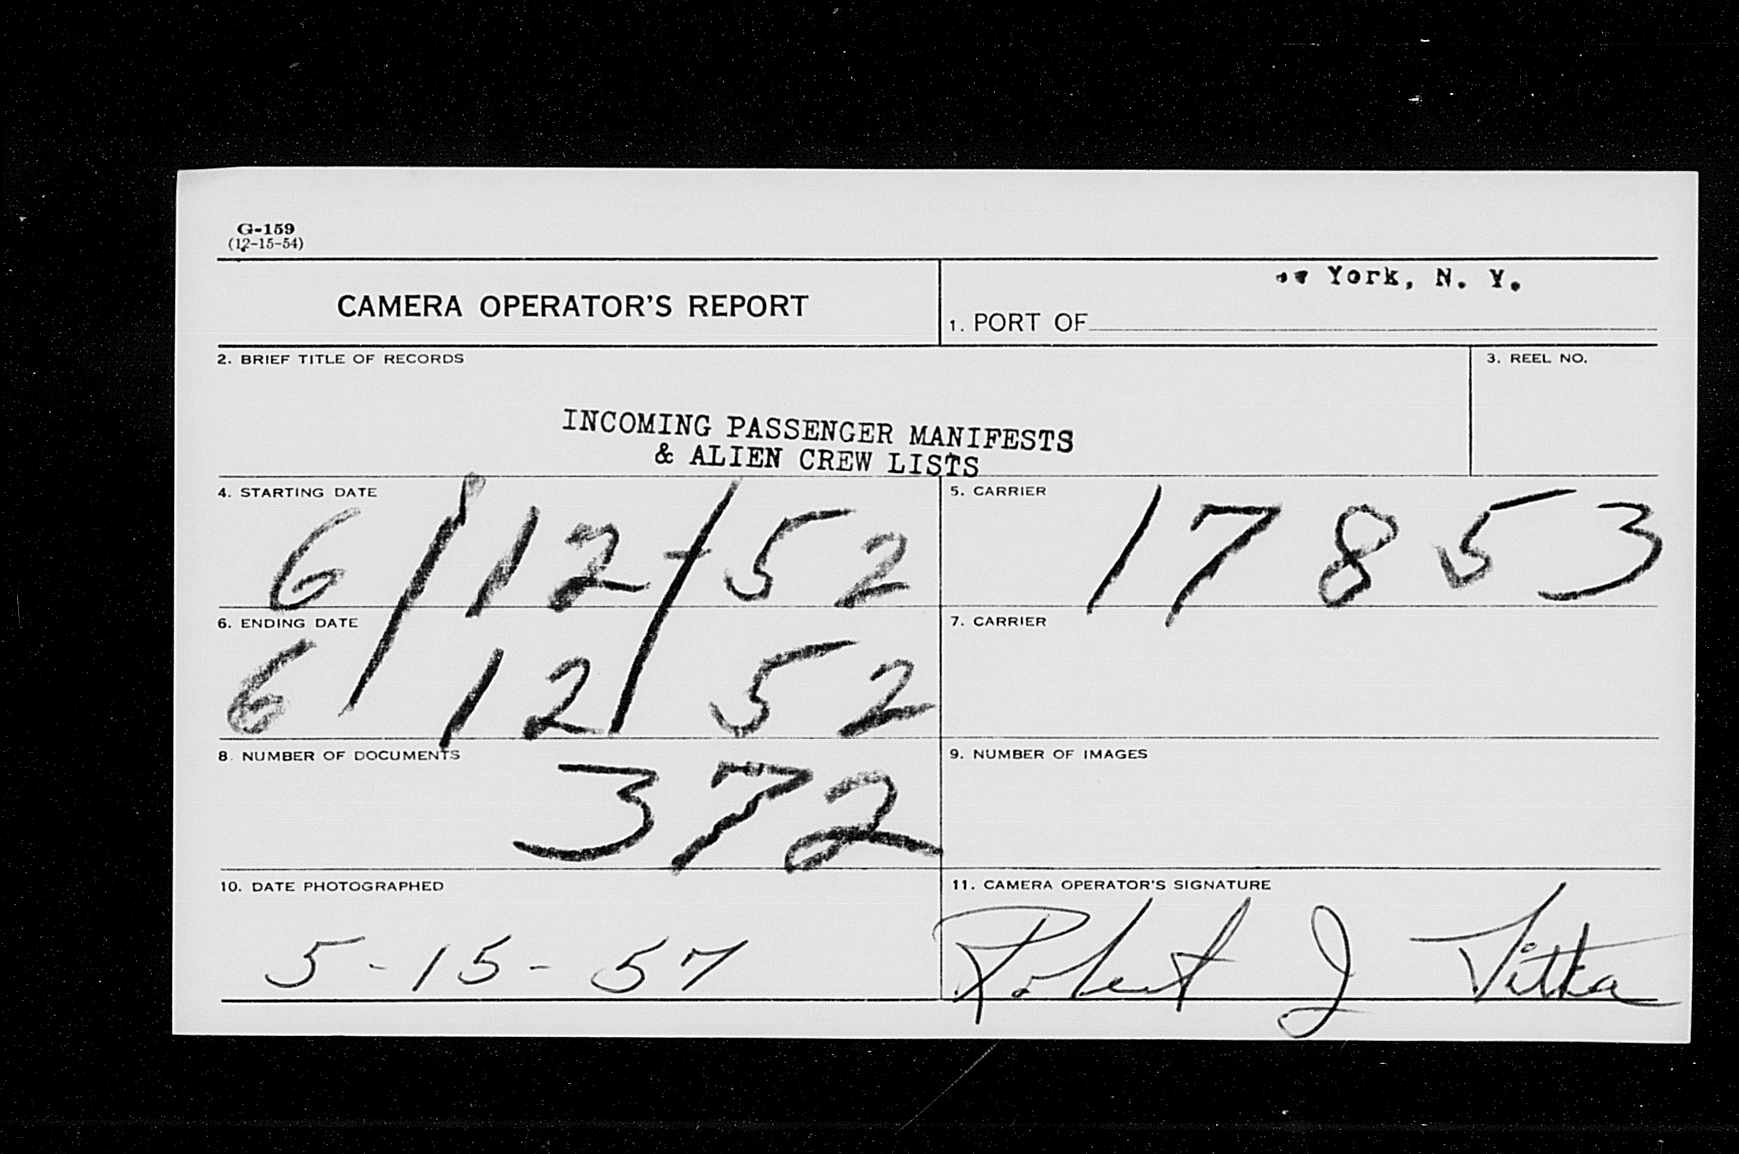 G-159
(12-15-54)
CAMERA OPERATOR'S REPORT
1. PORT OF York, N. Y.
2. BRIEF TITLE OF RECORDS
3. REEL NO.
INCOMING PASSENGER MANIFESTS
& ALIEN CREW LISTS
4. STARTING DATE
6/12/52
5. CARRIER
17853
6. ENDING DATE
6/12/52
7. CARRIER
8. NUMBER OF DOCUMENTS
372
9. NUMBER OF IMAGES
10. DATE PHOTOGRAPHED
5-15-57
11. CAMERA OPERATOR'S SIGNATURE
Robert J Vitka